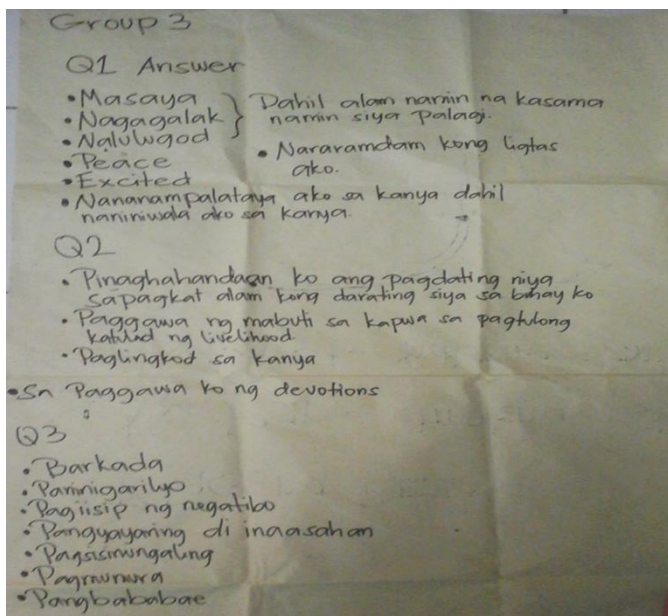 Group 3
Q1 Answer
• Masaya
• Nagagalak
• Nalulugod
} Dahil alam namin na kasama
namin siya palagi.
• Peace
• Nararamdam kong ligtas
ako.
• Excited
• Nananampalataya ako sa kanya dahil
naniniwala ako sa kanya.
Q2
• Pinaghahandaan ko ang pagdating niya
sapagkat alam kong darating siya sa buhay ko
• Paggawa ng mabuti sa kapwa sa pagtulong
katulad ng livelihood
• Paglingkod sa kanya
• Sa Paggawa ko ng devotions
Q3
• Barkada
• Paninigarilyo
• Pagiisip ng negatibo
• Pangyayaring di inaasahan
• Pagsisinungaling
• Pagmumura
• Pangbababae